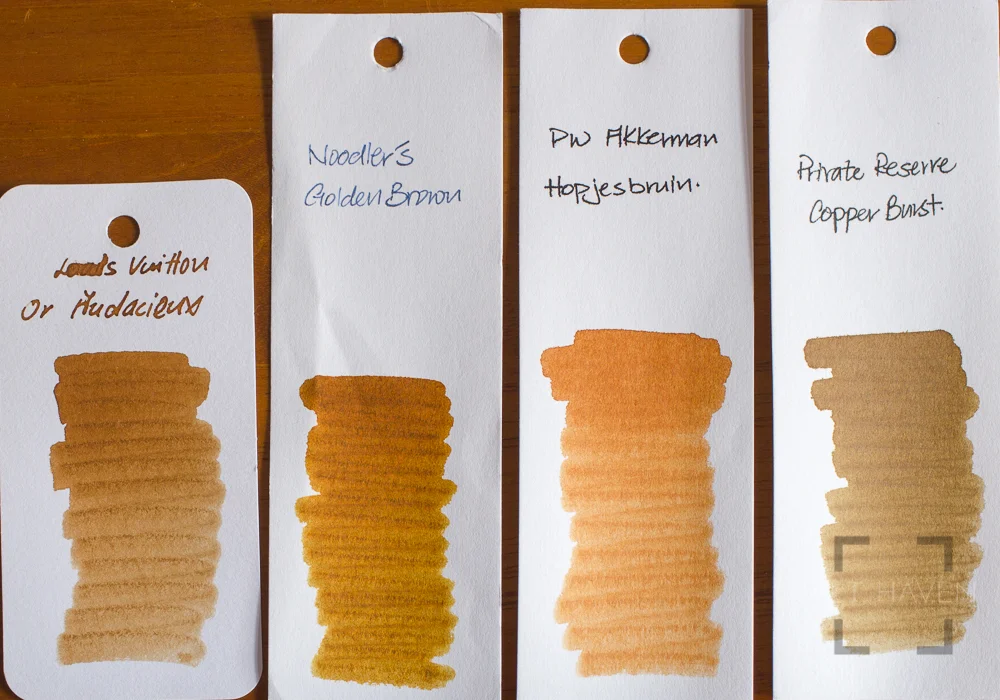 Louis Vuitton
Or Audacieux
Noodler's
Golden Brown
DW Akkerman
Hopjesbruin.
Private Reserve
Copper Burst.
HAVEN